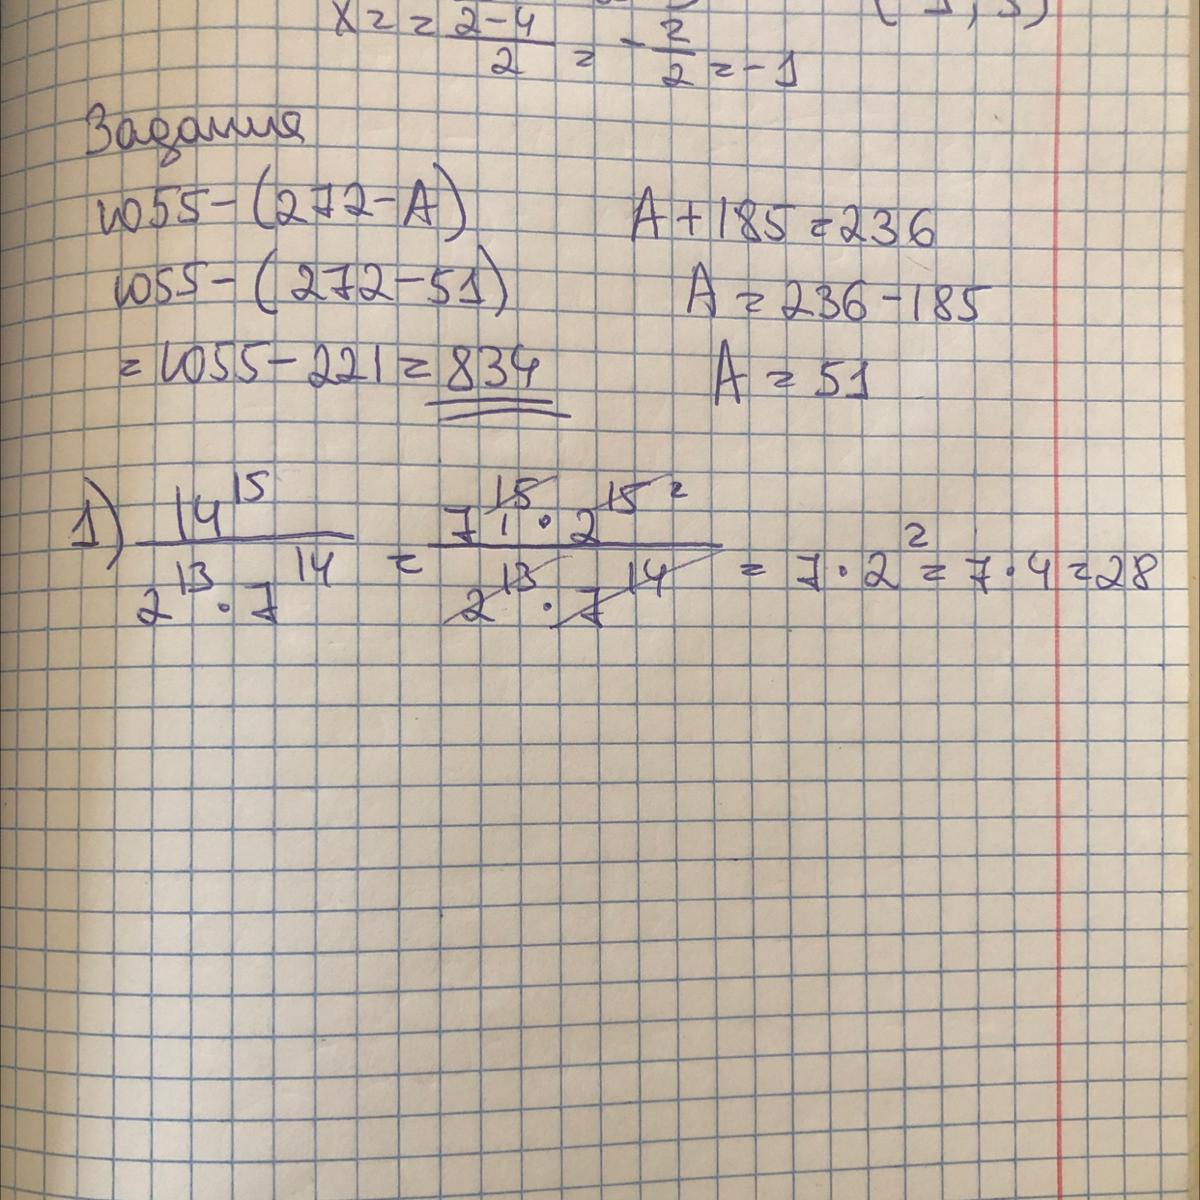 x₂ = \frac{2-4}{2} = -\frac{2}{2} = -1
Задания
1055-(272-A)
A+185=236
1055-(272-51)
A=236-185
=1055-221=834
A=51
1) \frac{14^{15}}{2^{13}·7^{14}} = \frac{7^{15 1}·2^{15 2}}{2^{13}·7^{14}} = 7·2^2=7·4=28